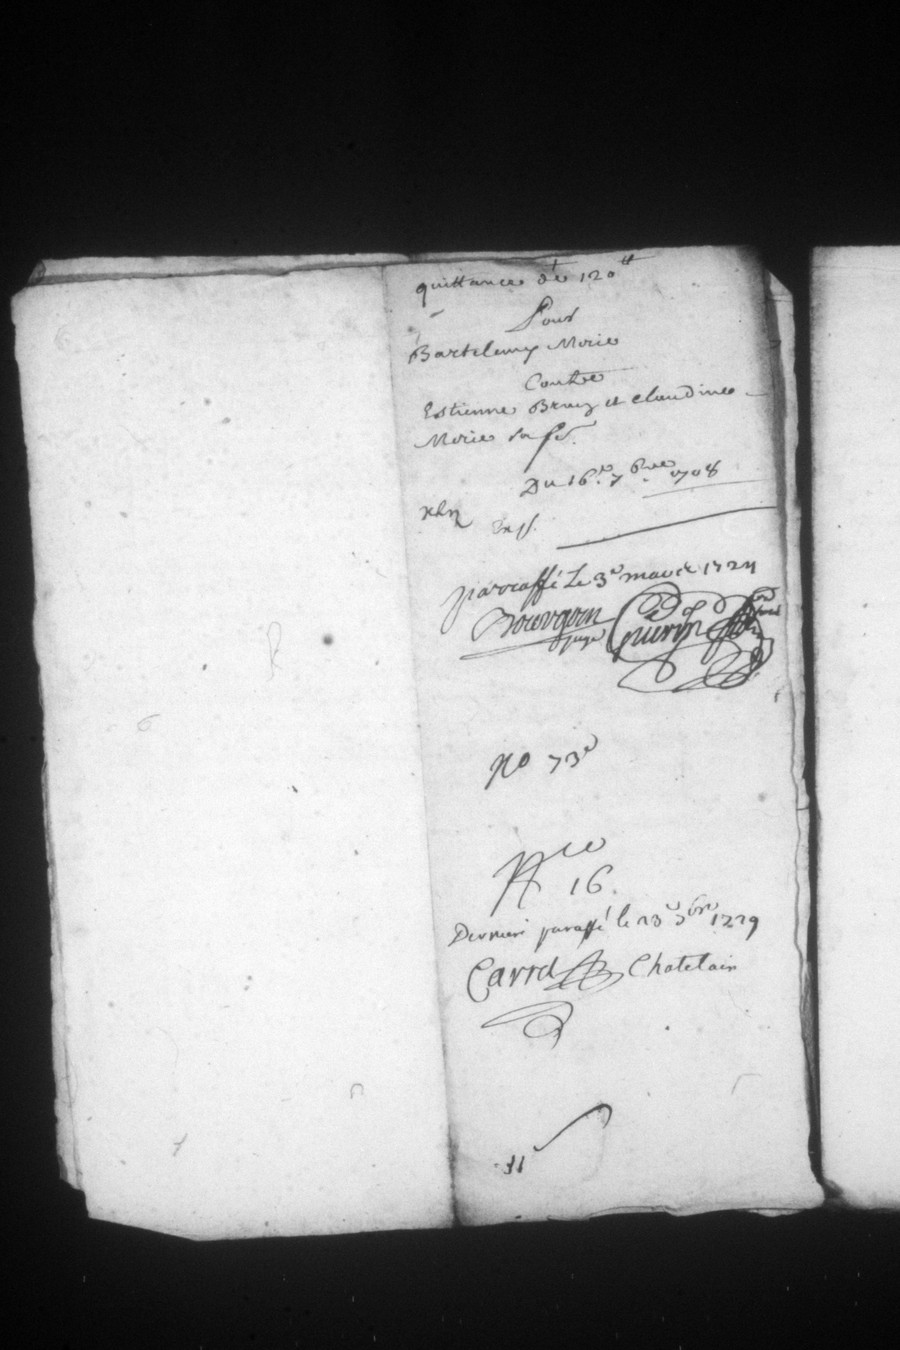 quittance de 120tt
Pour
Bartelemy Morie
Contre
Estienne Bruey et claudine
Morie sa fe.
Du 16e. 7bre 1708
parraffé Le 3e mars 1724
Bourgoin
juge
No 73e
16.
Dernieri paraffé le 13e xbre 1729
Carrel Chatelain